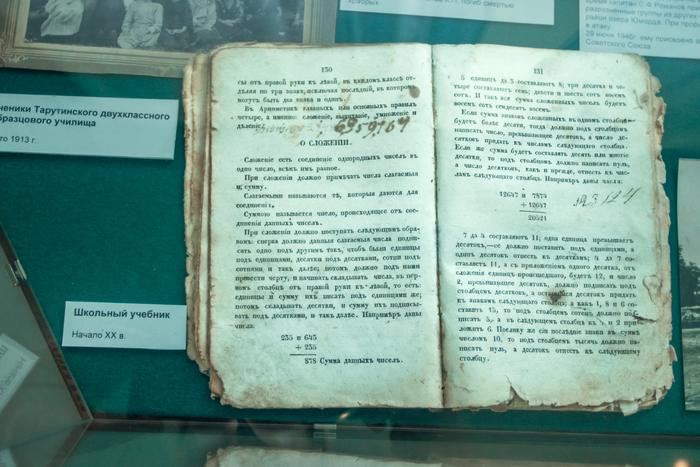 время капитан С.Ф.Романов
разрозненные группы из других
район озера Юмарда. При прорыве
в атаку
29 июня 1945г. ему присвоено
Советского Союза
погиб смертью
храбрых
ченики Тарутинского двухклассного
бразцового училища
то 1913 г.
Школьный учебник
Начало XX в.
130
сы отъ правой руки къ лѣвой, въ каждомъ классѣ от-
дѣляя по три знака, исключая послѣдній, въ которомъ
могутъ быть два знака и одинъ.
Въ Ариѳметикѣ главныхъ или основныхъ правилъ
четыре, а именно: сложеніе, вычитаніе, умноженіе и
дѣленіе.
6959164
О СЛОЖЕНІИ.
Сложеніе есть соединеніе однородныхъ чиселъ въ
одно число, всѣмъ имъ равное.
При сложеніи должно примѣчать числа слагаемыя
и сумму.
Слагаемыми называются тѣ, которыя даются для
соединенія.
Суммою называется число, происходящее отъ сое-
диненія данныхъ чиселъ.
При сложеніи должно поступать слѣдующимъ обра-
зомъ: сперва должно данныя слагаемыя числа подпи-
сать одно подъ другимъ такъ, чтобъ были единицы
подъ единицами, десятки подъ десятками, сотни подъ
сотнями и такъ далѣе; потомъ должно подъ ними
провести черту, и начинать складывать числа, въ пер-
вомъ столбцѣ отъ правой руки къ лѣвой, то есть:
единицы и сумму ихъ писать подъ единицами же;
потомъ складывать десятки, и сумму ихъ подписы-
вать подъ десятками, и такъ далѣе. Напримѣръ даны
числа:
235 и 643
+ 235
878 Сумма данныхъ чиселъ.
131
5 единицъ да 3 составляютъ 8; три десятка и че-
тыре составляютъ семь; двѣсти и шесть сотъ восемь
сотъ. И такъ вся сумма сложенныхъ чиселъ будетъ
восемь сотъ семдесятъ восемь.
Если сумма знаковъ сложенныхъ въ одномъ столбцѣ
будетъ болѣе десяти, тогда должно подъ столбцомъ
написать число, превышающее десятокъ, а число де-
сятковъ придать къ числамъ слѣдующаго столбца.
Если же сумма будетъ составлять десять или многіе
десятки, то подъ столбцомъ должно написать пуль,
а число десятковъ, какъ и прежде, отнесть къ чис-
ламъ слѣдующаго столбца. Напримѣръ даны числа:
12647 и 7874
+ 12647
20521
7 да 4 составляютъ 11; одна единица превышаетъ
десятокъ,—ее должно поставить подъ единицами, а
одинъ десятокъ отнесть къ десяткамъ; 4 да 7 со-
ставляетъ 11, а съ приложеніемъ одного десятка, отъ
сложенія единицъ происшедшаго, будетъ 12, и число
2, превышающее десятокъ, должно подписать подъ
столбцомъ десятковъ, а оставшійся десятокъ придать
къ знакамъ слѣдующаго столбца; а какъ 1, 8 и 6 со-
ставитъ 15, то подъ столбцомъ сотенъ должно под-
писать 5, а къ слѣдующему столбцу къ 7, и 2 при-
ложить 6. Поелику же сіи послѣдніе знаки въ суммѣ
числомъ 10, то подъ столбцемъ тысячъ должно на-
писать пуль, а десятокъ отнесть къ слѣдующему
столбцу.